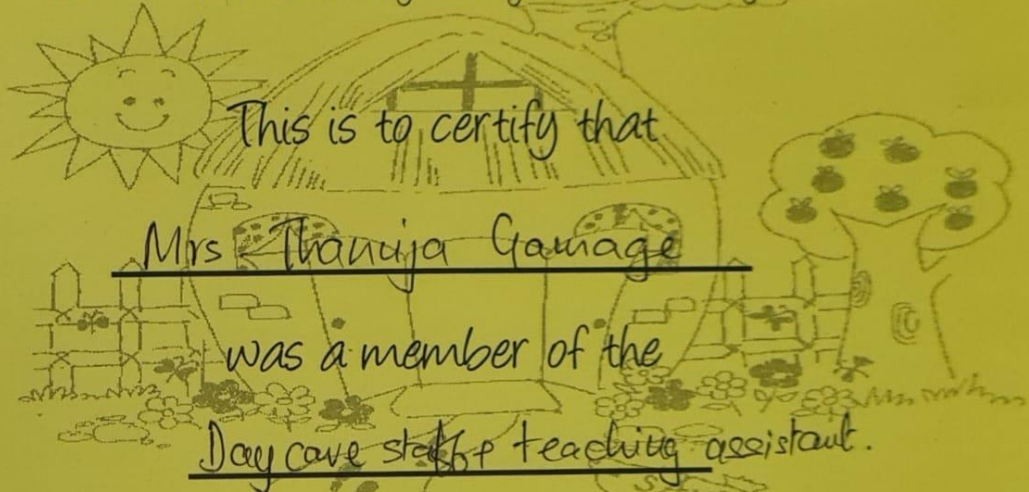 This is to certify that
Mrs Thanuja Gamage
was a member of the
Day care staff & teaching assistant.